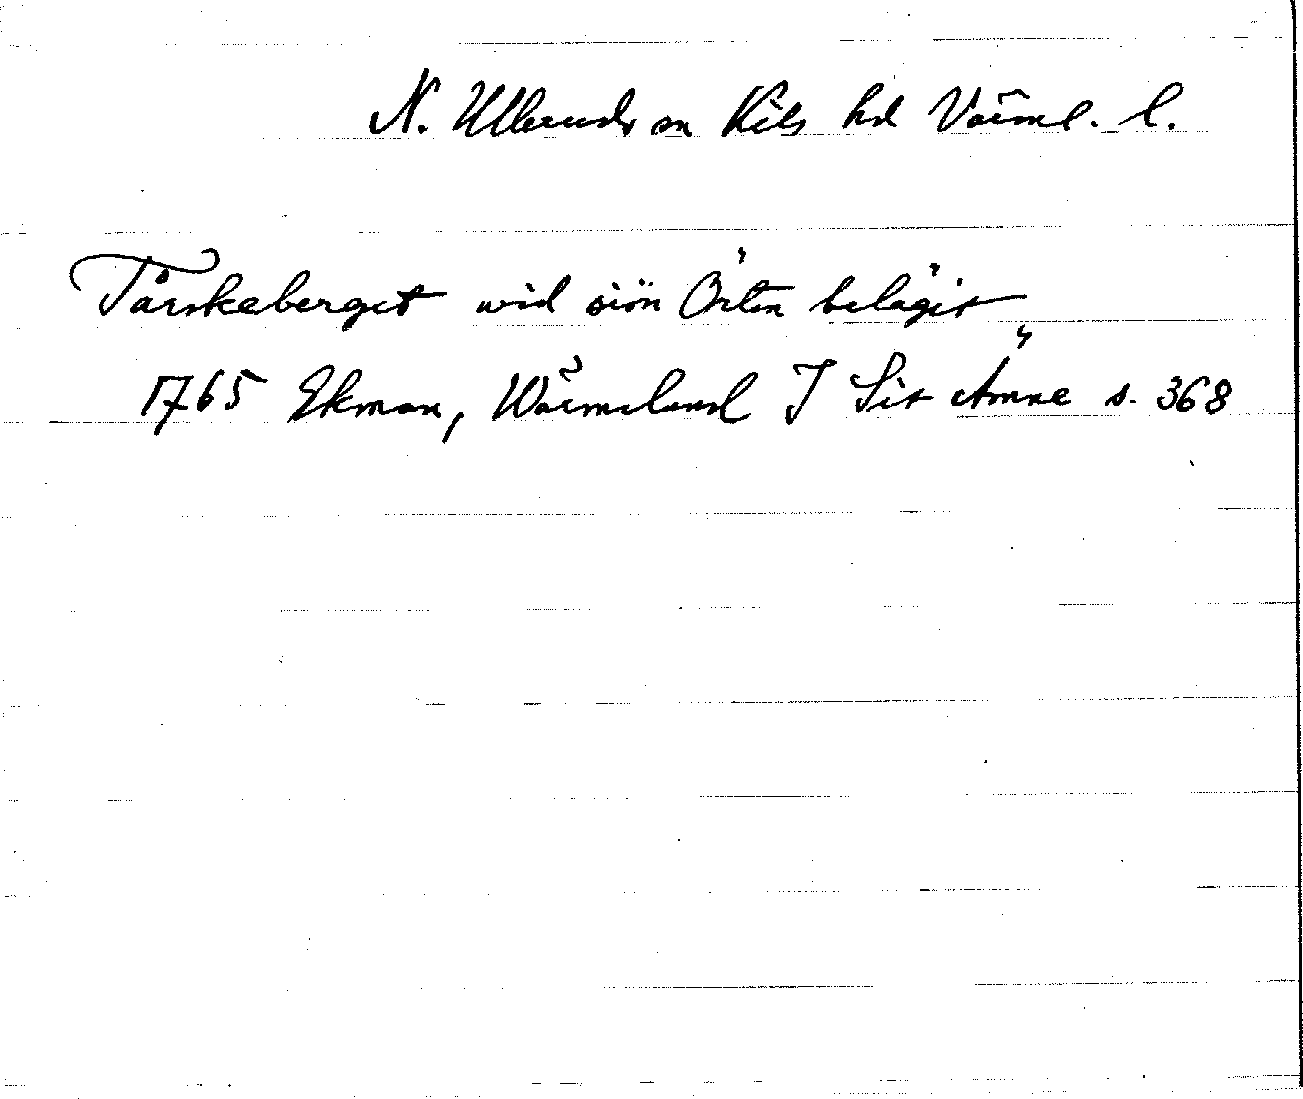 N. Ullerud sn Kils hd Värml. l.
Tårskeberget wid siön Örten belägit
1765 Ekman, Wärmeland I Sit Ämne s. 368